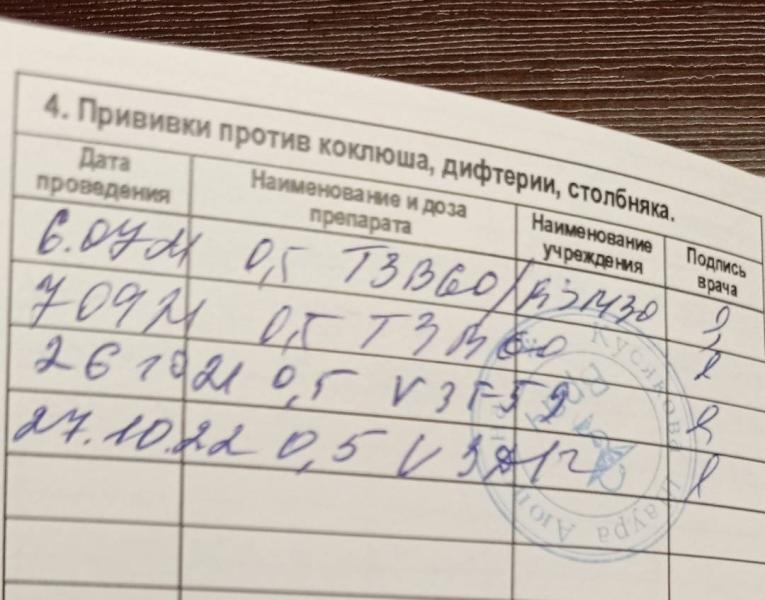 4. Прививки против коклюша, дифтерии, столбняка.
Дата проведения
Наименование и доза препарата
Наименование учреждения
Подпись врача
6.07.21 0,5 T3B60
7 09 21 0,5 T3B60
26 10 21 0,5 V3F52
27.10.22 0,5 V3
Кусякова Лаура